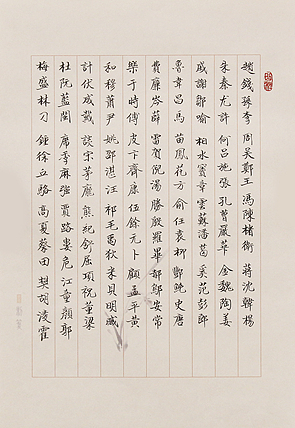 趙錢孫李 周吳鄭王 馮陳褚衛 蔣沈韓楊
朱秦尤許 何呂施張 孔曹嚴華 金魏陶姜
戚謝鄒喻 柏水竇章 雲蘇潘葛 奚范彭郎
魯韋昌馬 苗鳳花方 俞任袁柳 酆鮑史唐
費廉岑薛 雷賀倪湯 滕殷羅畢 郝鄔安常
樂于時傅 皮卞齊康 伍余元卜 顧孟平黃
和穆蕭尹 姚邵湛汪 祁毛禹狄 米貝明臧
計伏成戴 談宋茅龐 熊紀舒屈 項祝董梁
杜阮藍閔 席季麻強 賈路婁危 江童顏郭
梅盛林刁 鍾徐丘駱 高夏蔡田 樊胡凌霍